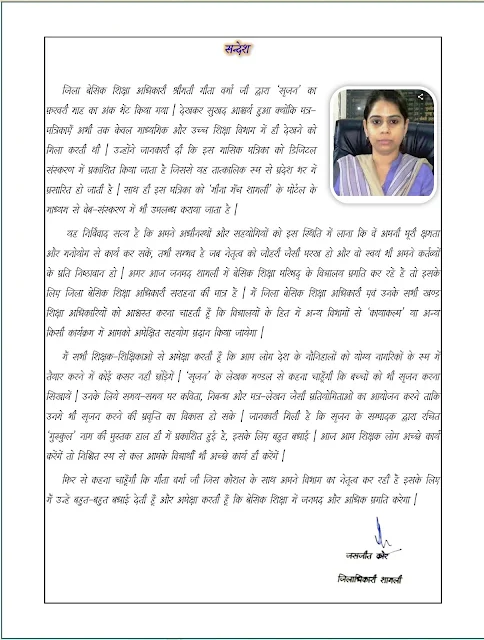 सन्देश
जिला बेसिक शिक्षा अधिकारी श्रीमती गीता वर्मा जी द्वारा 'सृजन' का
फ़रवरी माह का अंक भेंट किया गया | देखकर सुखद आश्चर्य हुआ क्योंकि पत्र-
पत्रिकाएँ अभी तक केवल माध्यमिक और उच्च शिक्षा विभाग में ही देखने को
मिला करती थी | उन्होंने जानकारी दी कि इस मासिक पत्रिका को डिजिटल
संस्करण में प्रकाशित किया जाता है जिससे यह तात्कालिक रूप से प्रदेश भर में
प्रसारित हो जाती है | साथ ही इस पत्रिका को 'मीना मंच शामली' के पोर्टल के
माध्यम से वेब-संस्करण में भी उपलब्ध कराया जाता है |
यह निर्विवाद सत्य है कि अपने अधीनस्थों और सहयोगियों को इस स्थिति में लाना कि वे अपनी पूरी क्षमता
और मनोयोग से कार्य कर सकें, तभी सम्भव है जब नेतृत्व को जौहरी जैसी परख हो और वो स्वयं भी अपने कर्तव्यों
के प्रति निष्ठावान हो | अगर आज जनपद शामली में बेसिक शिक्षा परिषद् के विद्यालय प्रगति कर रहे है तो इसके
लिए जिला बेसिक शिक्षा अधिकारी सराहना की पात्र है | मैं जिला बेसिक शिक्षा अधिकारी एवं उनके सभी खण्ड
शिक्षा अधिकारियों को आश्वस्त करना चाहती हूँ कि विद्यालयों के हित में अन्य विभागों से 'कायाकल्प' या अन्य
किसी कार्यक्रम में आपको अपेक्षित सहयोग प्रदान किया जायेगा |
मैं सभी शिक्षक-शिक्षिकाओं से अपेक्षा करती हूँ कि आप लोग देश के नौनिहालों को योग्य नागरिकों के रूप में
तैयार करने में कोई कसर नहीं छोड़ेंगें | 'सृजन' के लेखक मण्डल से कहना चाहूँगी कि बच्चों को भी सृजन करना
सिखायें | उनके लिये समय-समय पर कविता, निबन्ध और पत्र-लेखन जैसी प्रतियोगिताओं का आयोजन करते ताकि
उनमें भी सृजन करने की प्रवृत्ति का विकास हो सके | जानकारी मिली है कि सृजन के सम्पादक द्वारा रचित
'गुरुकुल' नाम की पुस्तक हाल ही में प्रकाशित हुई है, इसके लिए बहुत बधाई | आज आप शिक्षक लोग अच्छे कार्य
करेंगे तो निश्चित रूप से कल आपके विद्यार्थी भी अच्छे कार्य ही करेंगे |
फिर से कहना चाहूँगी कि गीता वर्मा जी जिस कौशल के साथ अपने विभाग का नेतृत्व कर रही है इसके लिए
मैं उन्हें बहुत-बहुत बधाई देती हूँ और अपेक्षा करती हूँ कि बेसिक शिक्षा में जनपद और अधिक प्रगति करेगा |
जसजीत कौर
जिलाधिकारी शामली